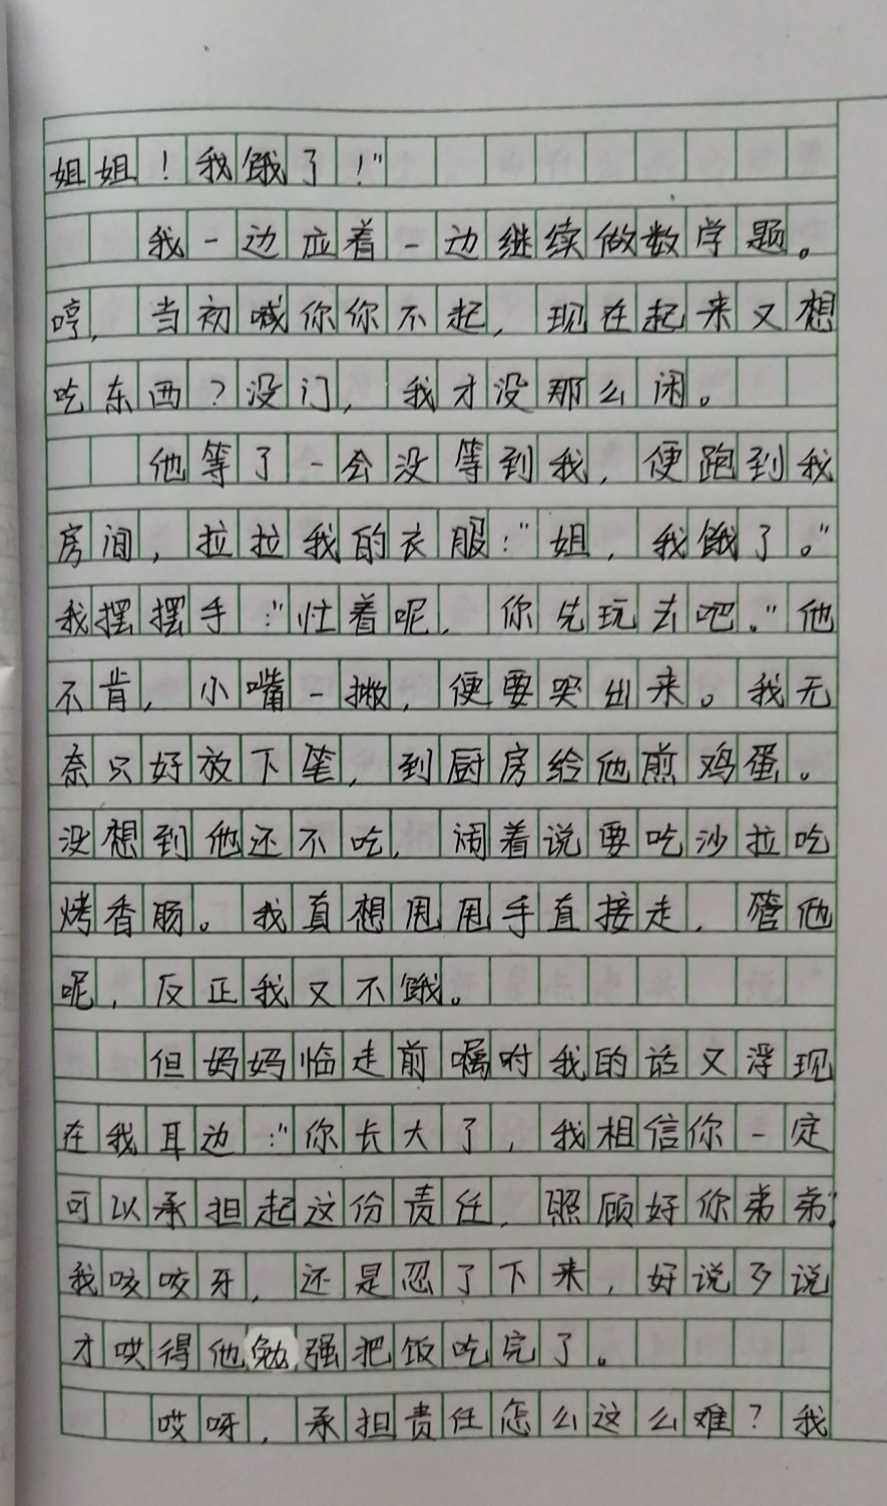 姐姐！我饿了！"
我一边应着一边继续做数学题。
哼，当初喊你你不起，现在起来又想
吃东西？没门，我才没那么闲。
他等了一会没等到我，便跑到我
房间，拉拉我的衣服："姐，我饿了。"
我摆摆手："忙着呢，你先玩去吧。"他
不肯，小嘴一撇，便要哭出来。我无
奈只好放下笔，到厨房给他煎鸡蛋。
没想到他还不吃，闹着说要吃沙拉吃
烤香肠。我真想甩甩手直接走，管他
呢，反正我又不饿。
但妈妈临走前嘱咐我的话又浮现
在我耳边："你长大了，我相信你一定
可以承担起这份责任，照顾好你弟弟"。
我咳咬牙，还是忍了下来，好说歹说
才哄得他勉强把饭吃完了。
哎呀，承担责任怎么这么难？我